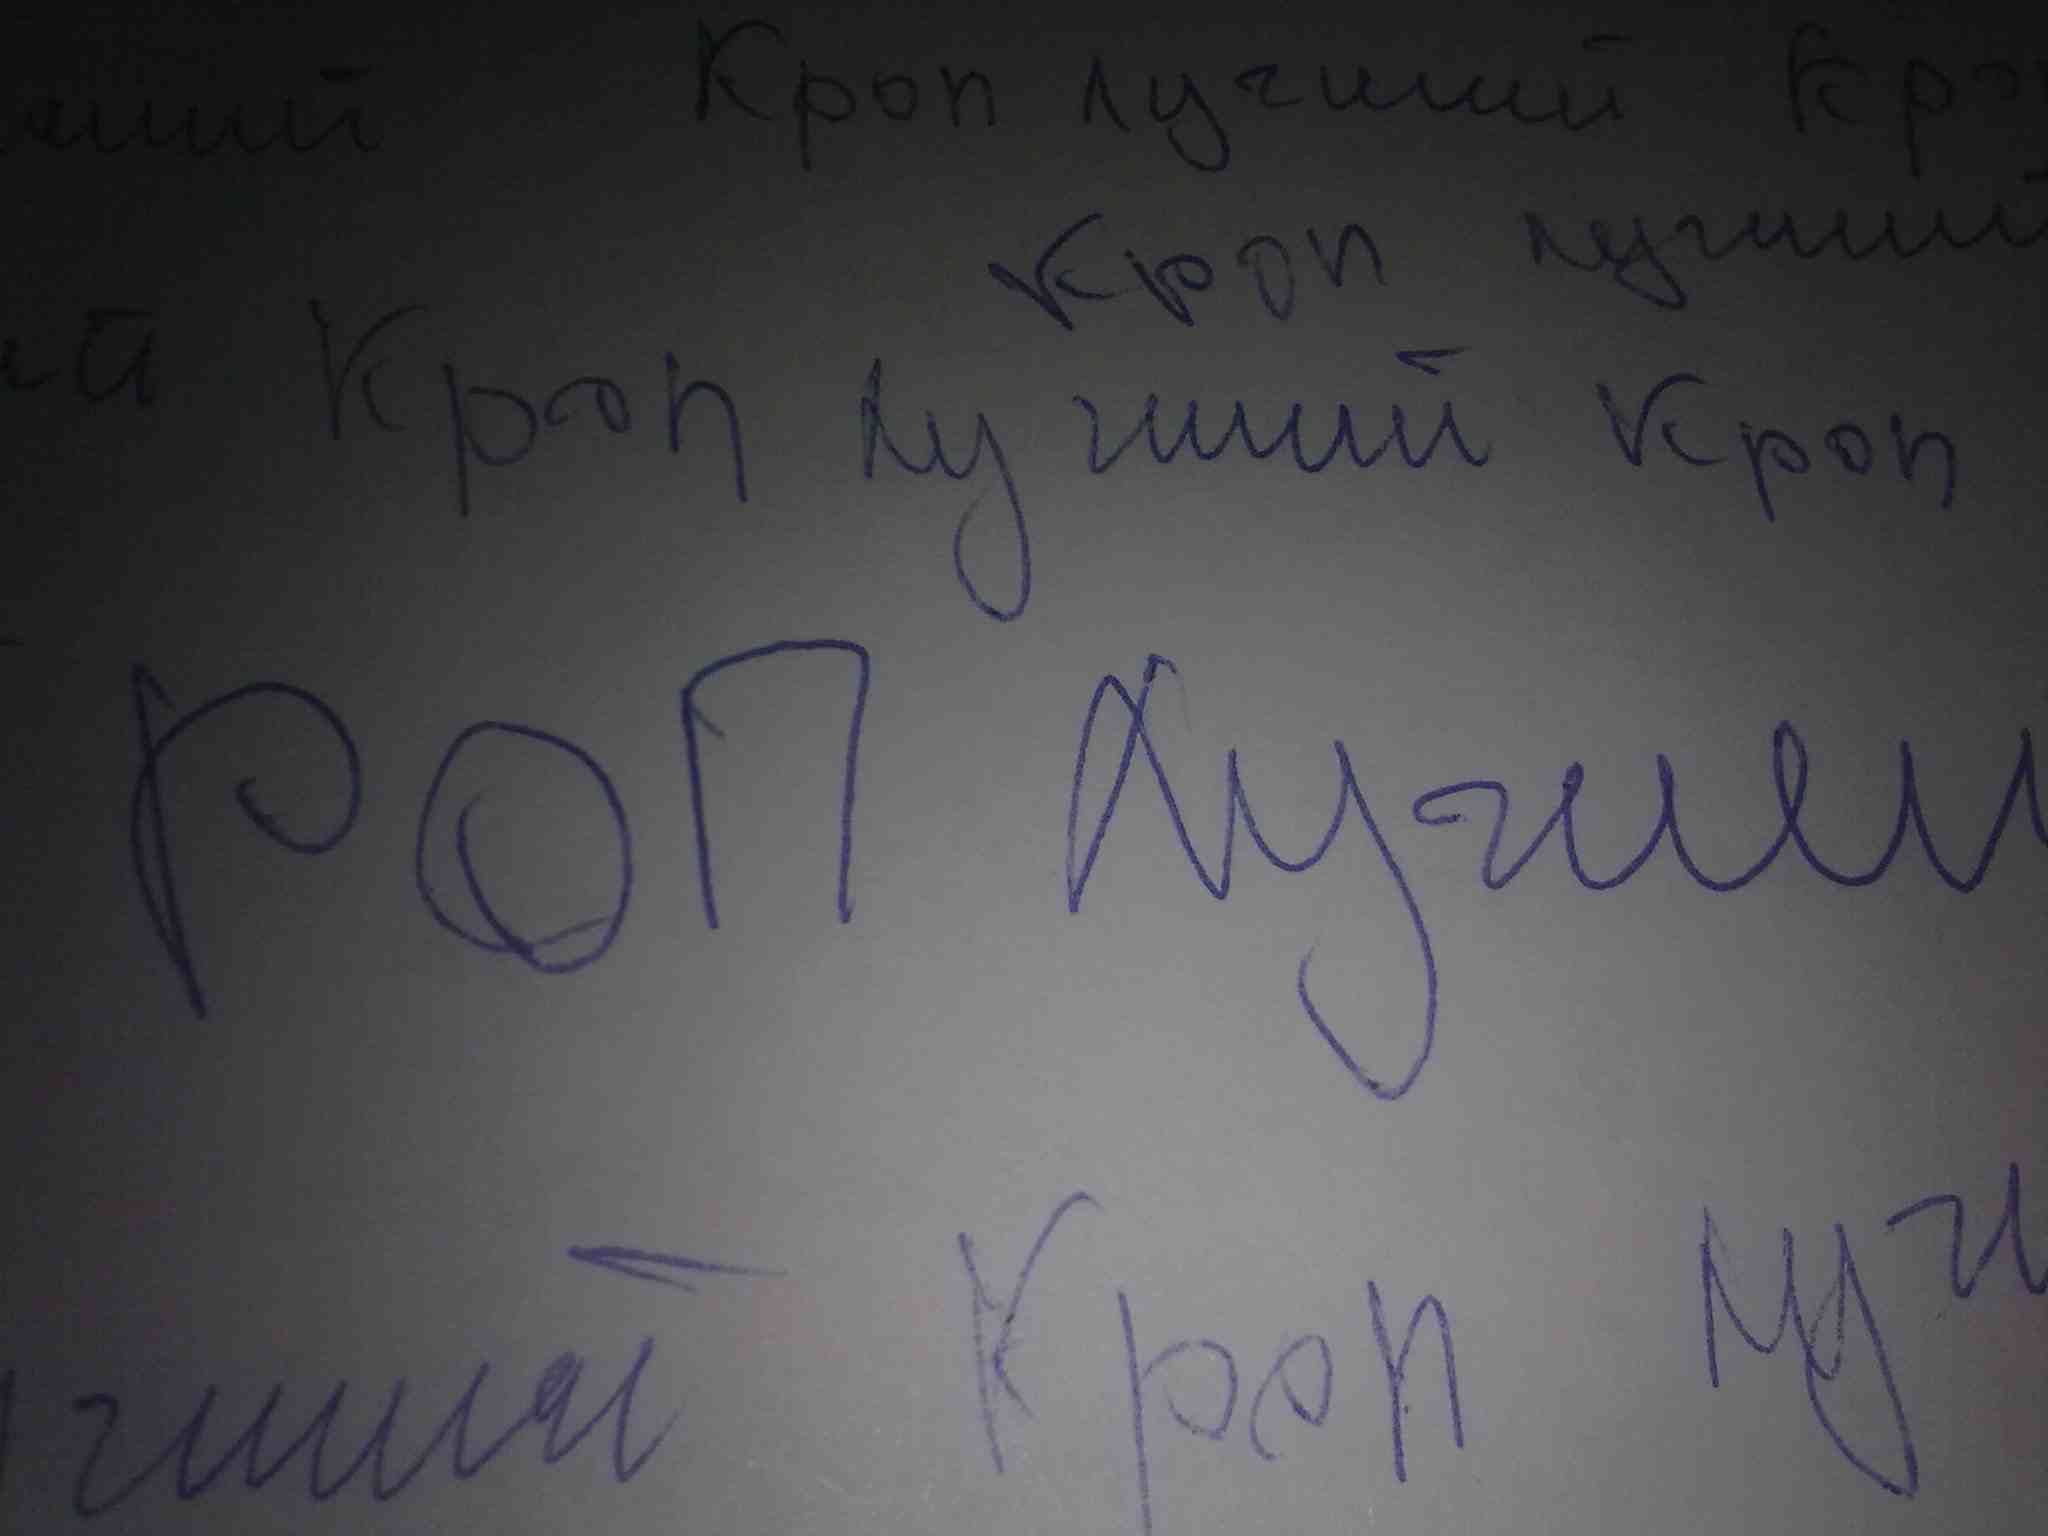 чший Кроп лучший Кро
Кроп лучший
ий Кроп лучший Кроп
РОП Лучш
учший Кроп луч